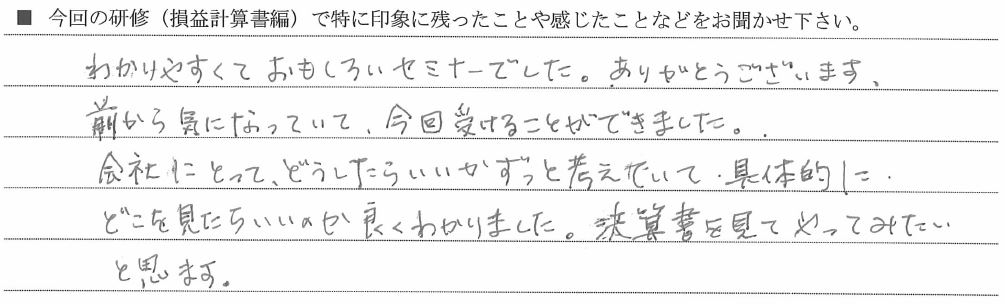 ■ 今回の研修（損益計算書編）で特に印象に残ったことや感じたことなどをお聞かせ下さい。
わかりやすくて おもしろいセミナーでした。ありがとうございます、
前から気になっていて、今回受けることができました。
会社にとって、どうしたらいいかずっと考えていて、具体的に
どこを見たらいいのか良くわかりました。決算書を見てやってみたい
と思ます。